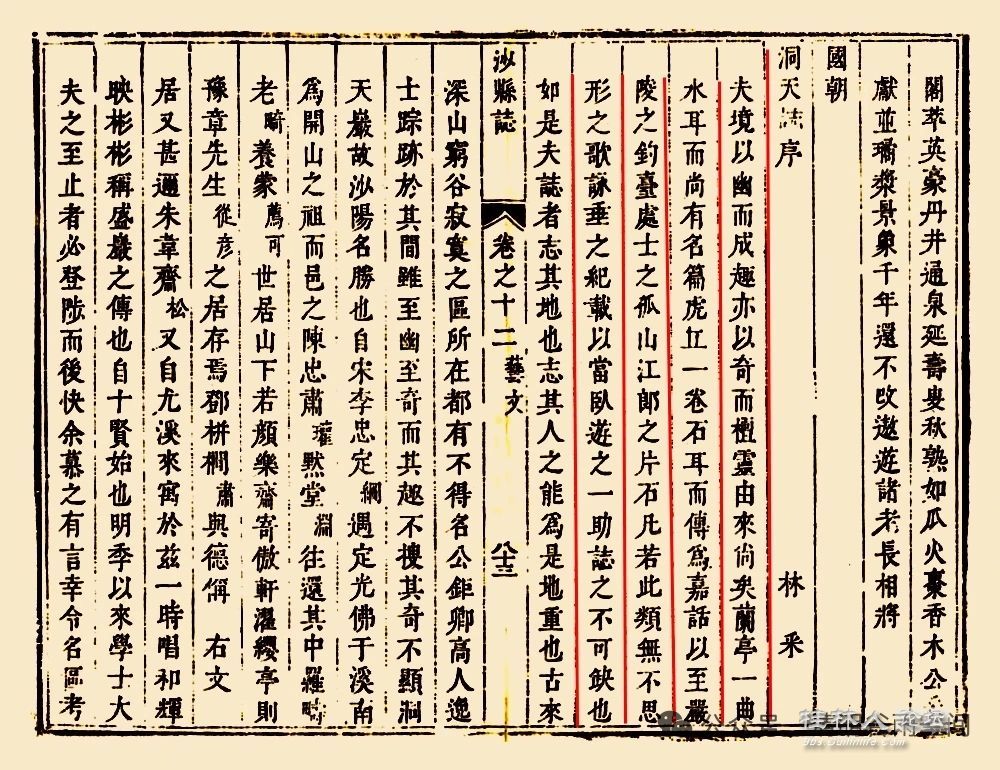 閣萃英豪丹井通泉延壽叟秋熟如瓜火棗香木公
獻並璚漿景象千年還不改遨遊諸老長相將
國朝
洞天誌序 林釆
夫境以幽而成趣亦以奇而檀靈由來尙矣蘭亭一曲
水耳而尚有名篇虎丘一卷石耳而傳爲嘉話以至嚴
陵之釣臺處士之孤山江郎之片石凡若此類無不思
形之歌詠垂之紀載以當臥遊之一助誌之不可缺也
如是夫誌者志其地也志其人之能爲是地重也古來
沙縣誌 卷之十二 藝文 八十三
深山窮谷寂寞之區所在都有不得名公鉅卿高人逸
士踪跡於其間雖至幽至奇而其趣不搜其奇不顯洞
天巖故沙陽名勝也自宋李忠定綱遇定光佛于溪南
爲開山之祖而邑之陳忠肅瓘默堂淵往還其中羅
老畸養蒙薦可世居山下若顏樂齋寄傲軒濯纓亭則
豫章先生從彥之居存焉鄧栟櫚肅與德儔 右文
居又甚邇朱韋齋松又自尤溪來寓於茲一時唱和輝
映彬彬稱盛巖之傳也自十賢始也明季以來學士大
夫之至止者必登陟而後快余慕之有言幸令名區考
桂林人论坛
bbs.Guilinlife.com